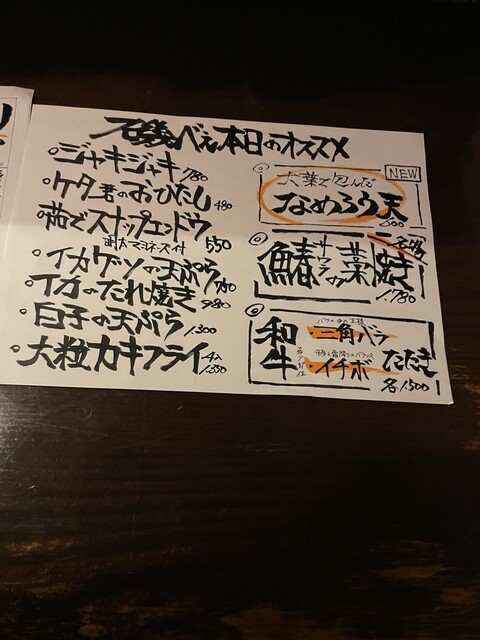 磯べえ本日のオススメ
・ジャキジャキ 780
・ケタ君のおひたし 480
・茹でスナップエンドウ
マヨネーズ付 550
・イカゲソの天ぷら 780
・イカのたれ焼き 980
・白子の天ぷら 1.300
・大粒カキフライ 4入 1.350
NEW
大葉で包んだ
なめろう天
名物
鰆サワラの藁焼き
1.780
和牛
三角バラ
イチボ
たたき
各1.500